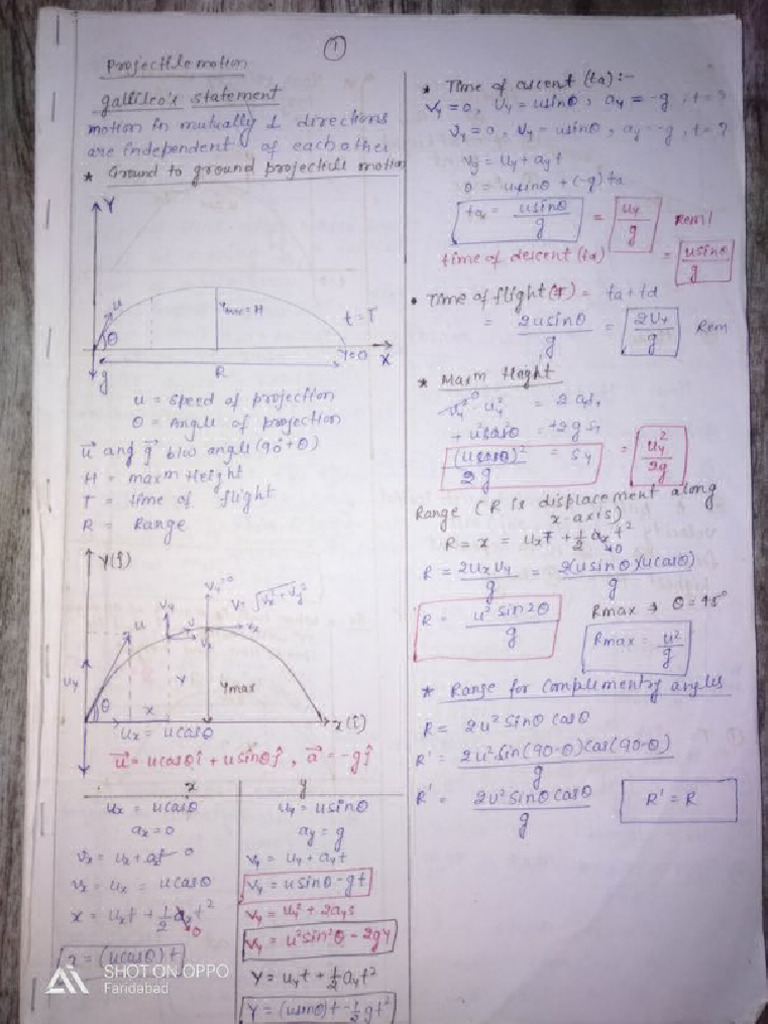 1
Projectile motion
gallileo's statement
motion in mutually ⊥ directions
are independent of each other
* Ground to ground projectile motion
Y
u
θ
Ymax = H
t = T
Y=0
X
g
R
u = Speed of projection
θ = Angle of projection
u⃗ and g⃗ b/w angle (90°+θ)
H = maxm Height
T = time of flight
R = Range
Y(ĵ)
u
Vy
Vy=0
V = √Vx²+Vy²
Vx
Vx
uy
θ
x
Y
Ymax
x(î)
ux = ucosθ
u⃗ = ucosθî + usinθĵ , a⃗ = -gĵ
x
ux = ucosθ
ax = 0
vx = ux + axt 0
vx = ux = ucosθ
x = uxt + ½ axt² 0
x = (ucosθ)t
y
uy = usinθ
ay = g
vy = uy + ayt
vy = usinθ - gt
vy = uy² + 2ays
vy = u²sin²θ - 2gY
Y = uyt + ½ ayt²
Y = (usinθ)t - ½ gt²
* Time of ascent (ta) :-
vy = 0, uy = usinθ, ay = -g, t = ?
vy = 0, uy = usinθ, ay = -g, t = ?
vy = uy + ayt
0 = usinθ + (-g)ta
ta = usinθ/g = uy/g
time of descent (td) = usinθ/g
• Time of flight (T) = ta + td
= 2usinθ/g = 2Vy/g Rem
* Maxm Height
vy² 0 - uy² = 2aysy
(usinθ)²/2g = sy = uy²/2g
Range (R is displacement along
x-axis)
R = x = uxT + ½ axt² 0
R = 2uxVy/g = 2(usinθ)(ucosθ)/g
R = u² sin2θ/g
Rmax → θ = 45°
Rmax = u²/g
* Range for Complementry angles
R = 2u² sinθ cosθ
R' = 2u² sin(90-θ)cos(90-θ)/g
R' = 2u² sinθ cosθ/g
R' = R
SHOT ON OPPO
Faridabad